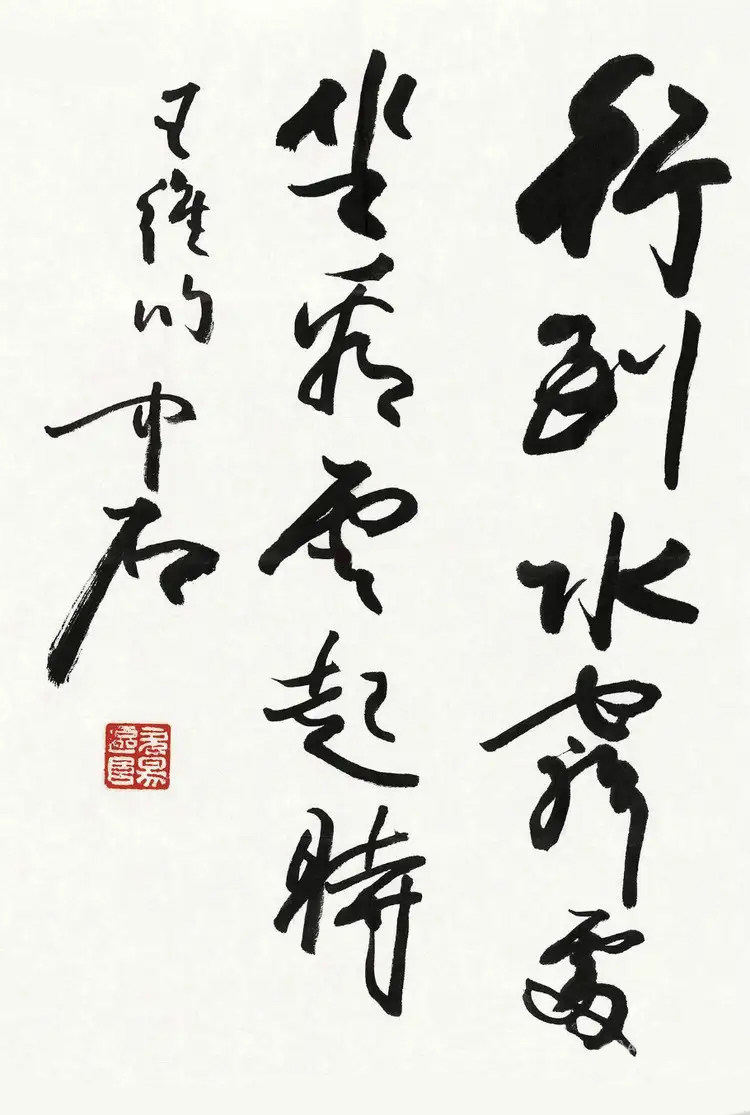 行到水窮處
坐看雲起時
王維句 中石